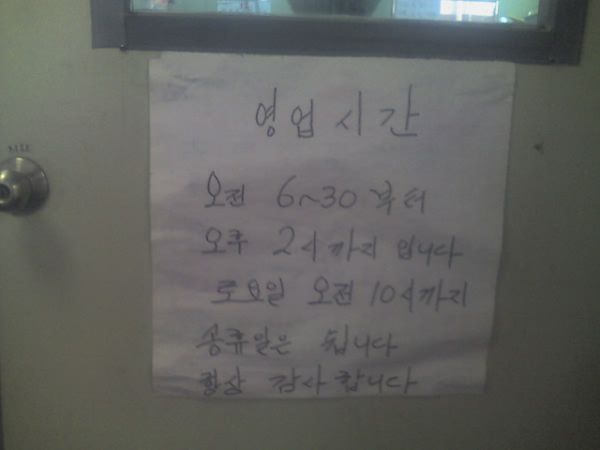 영업시간
오전 6~30 부터
오후 2시까지 입니다
토요일 오전 10시까지
공휴일은 쉽니다
항상 감사합니다